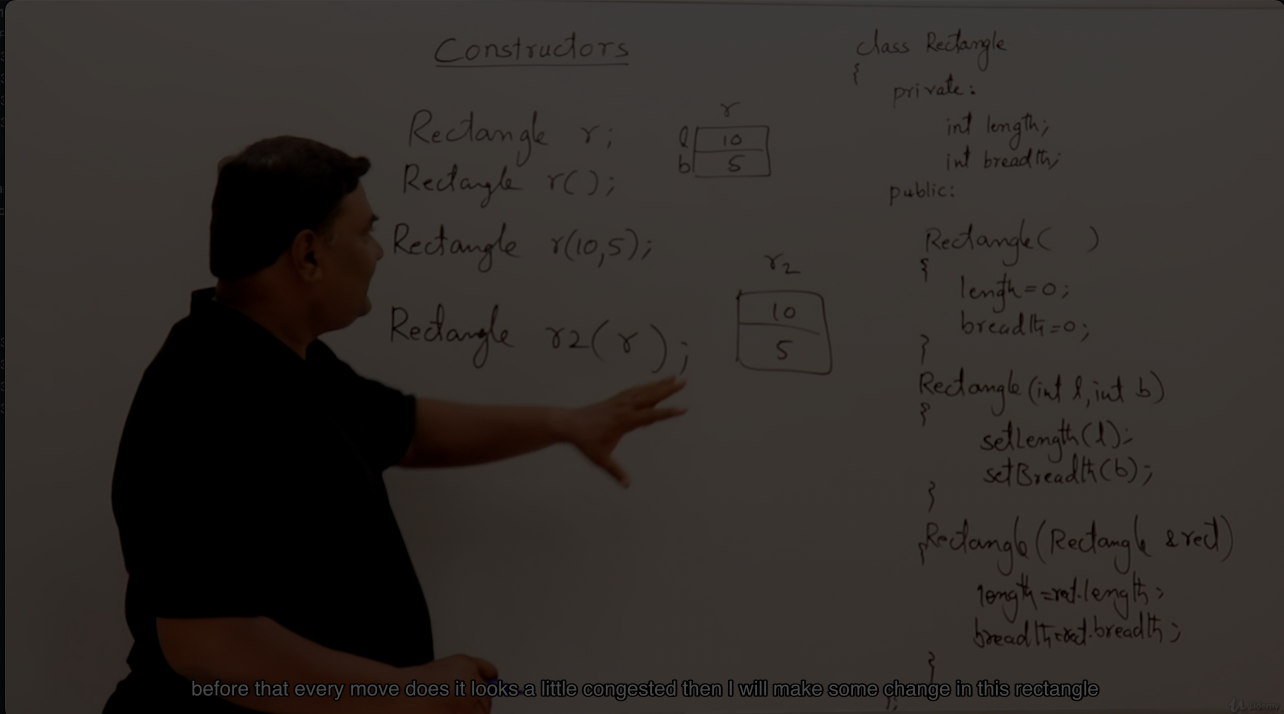 Constructors
Rectangle r;
Rectangle r();
Rectangle r(10,5);
Rectangle r2(r);
r
l 10
b 5
r2
10
5
class Rectangle
{
private:
int length;
int breadth;
public:
Rectangle( )
{
length=0;
breadth=0;
}
Rectangle(int l, int b)
{
setLength(l);
setBreadth(b);
}
Rectangle(Rectangle &rect)
{
length=rect.length;
breadth=rect.breadth;
}
};
before that every move does it looks a little congested then I will make some change in this rectangle